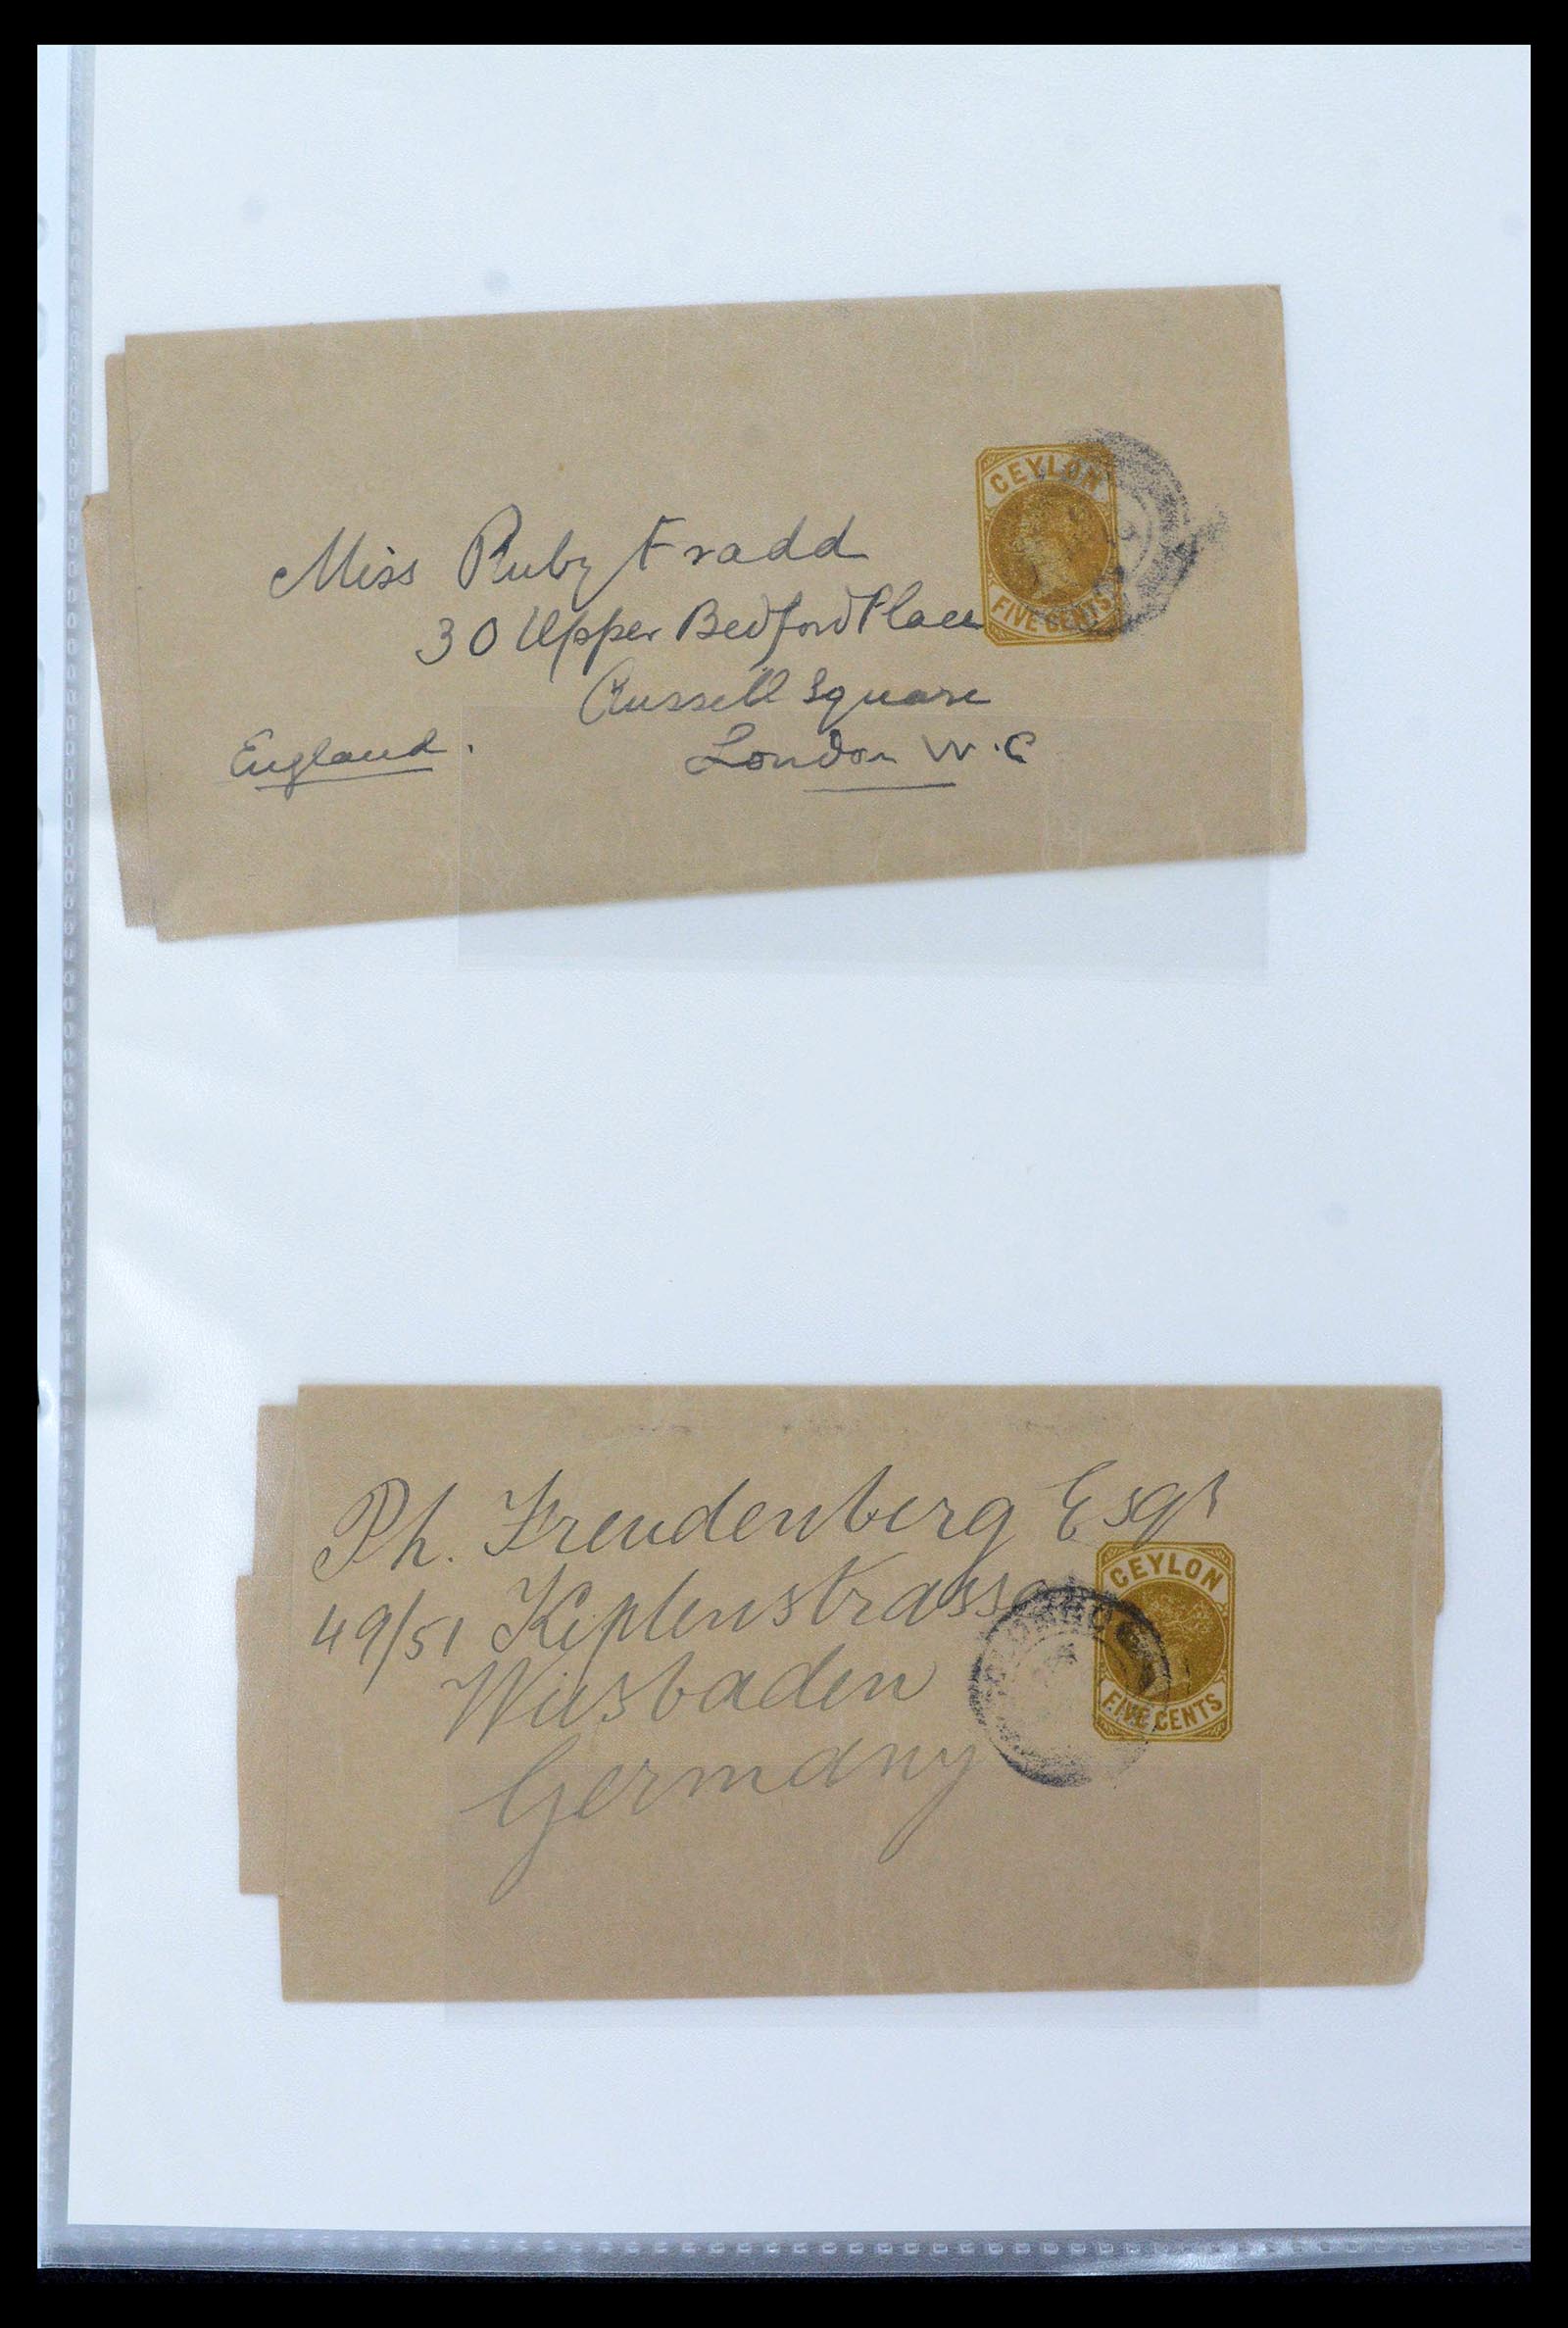 CEYLON
FIVE CENTS
Miss Ruby Fradd
30 Upper Bedford Place
Russell Square
London W.C
England.
Ph. Freudenberg Esqr
49/51
Wiesbaden
Germany
CEYLON
FIVE CENTS